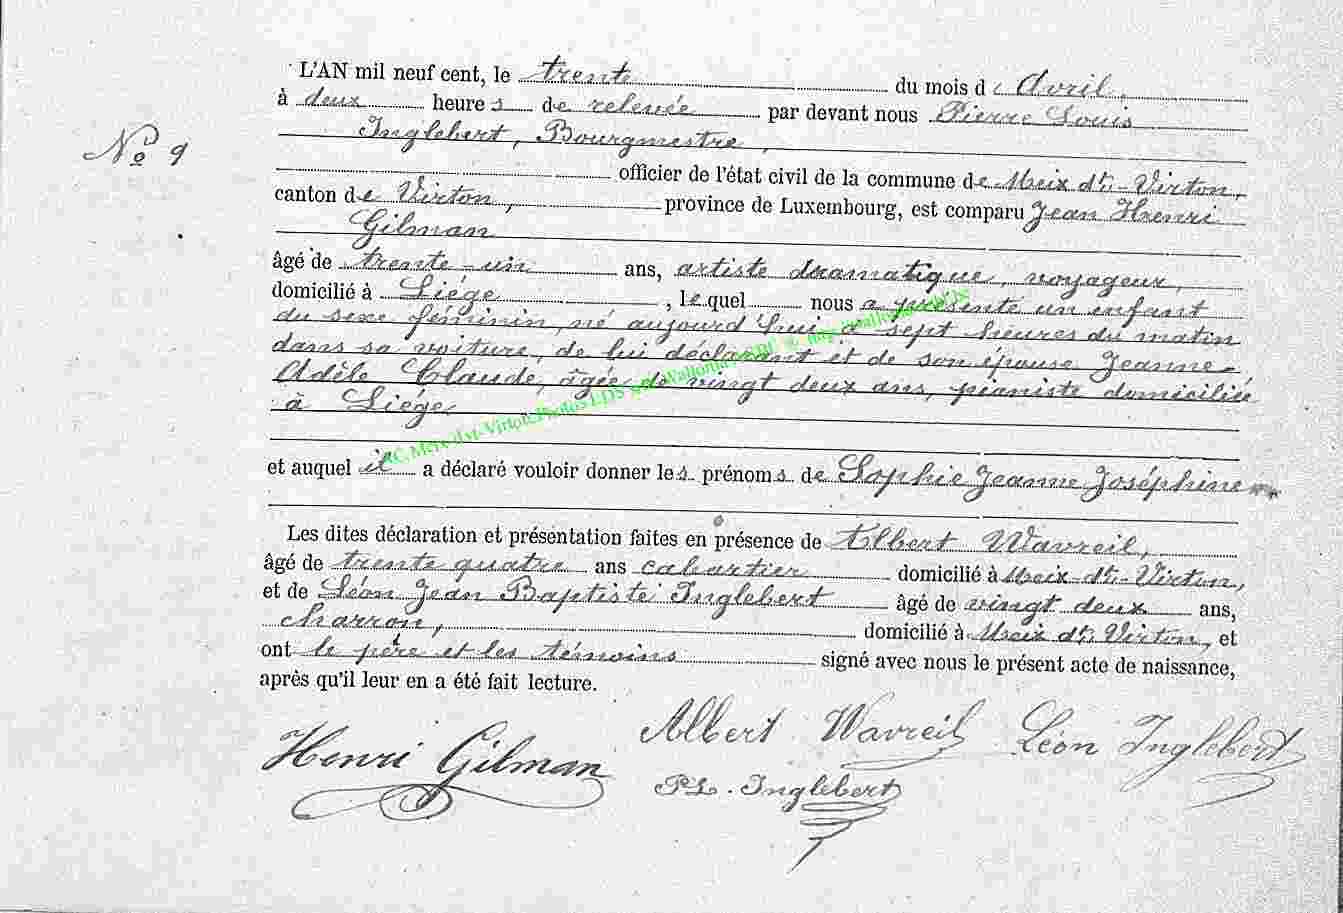 L'AN mil neuf cent, le trente du mois d'Avril,
à deux heures de relevée par devant nous Pierre Louis
Nº 9
Inglebert, Bourgmestre,
officier de l'état civil de la commune de Meix dt-Virton,
canton de Virton, province de Luxembourg, est comparu Jean Henri
Gilman
âgé de trente-un ans, artiste dramatique, voyageur,
domicilié à Liége, lequel nous a présenté un enfant
du sexe féminin, né aujourd'hui à sept heures du matin
dans sa voiture, de lui déclarant et de son épouse Jeanne-
Adèle Claude, âgée de vingt deux ans, pianiste domiciliée
à Liége
et auquel il a déclaré vouloir donner les prénoms de Sophie Jeanne Joséphine
Les dites déclaration et présentation faites en présence de Albert Wavreil,
âgé de trente quatre ans cabartier domicilié à Meix-dt-Virton,
et de Léon Jean Baptiste Inglebert âgé de vingt deux ans,
charron, domicilié à Meix dt Virton, et
ont le père et les témoins signé avec nous le présent acte de naissance,
après qu'il leur en a été fait lecture.
Albert Wavreil Léon Inglebert
Henri Gilman
PL. Inglebert